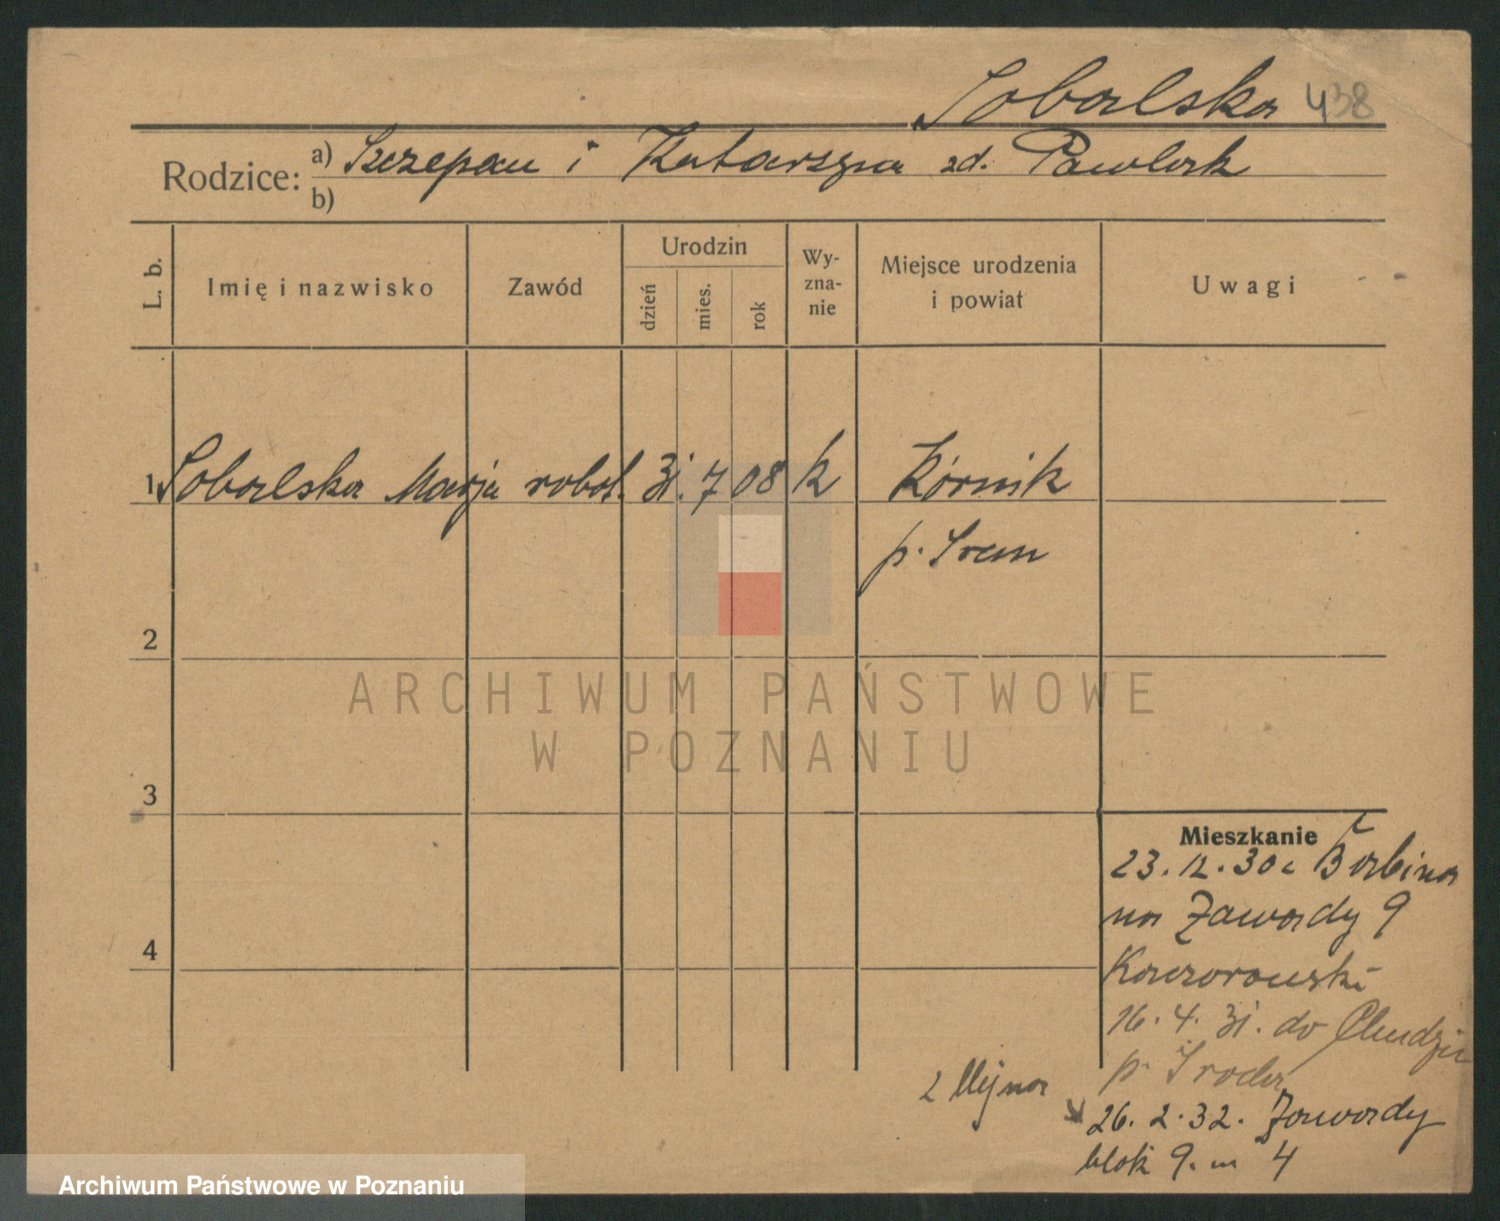 Sobalska 438
Rodzice: a) Szczepan i Katarzyna zd. Pawlak
b)
L. b. Imię i nazwisko Zawód Urodzin dzień mies. rok Wyznanie Miejsce urodzenia i powiat Uwagi
1 Sobalska Marja robot. 31. 7 08 k Kórnik
p. Śrem
2
ARCHIWUM PAŃSTWOWE
W POZNANIU
3
Mieszkanie
23. 12. 30 z
na Zawady 9
4
16. 4. 31. do
p. Środa
26. 2. 32. Zawady
blok 9. m 4
Archiwum Państwowe w Poznaniu